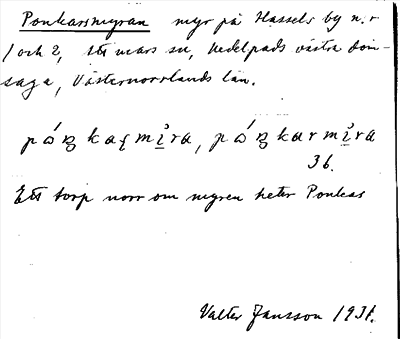 Ponkarsmyran myr på Hassels by n:r
1 och 2, Attmars sn, Medelpads västra dom-
saga, Västernorrlands län.
36.
Ett torp norr om myren heter Ponkas
Valter Jansson 1931.